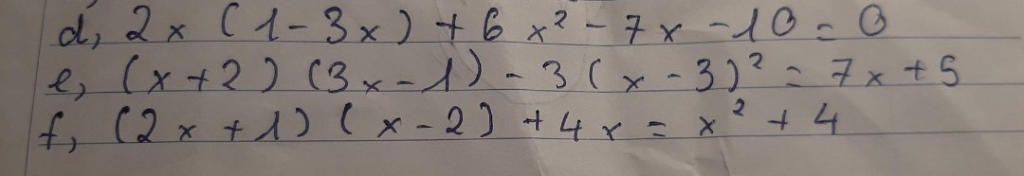 d, 2x (1-3x) + 6x² - 7x - 10 = 0
e, (x+2) (3x-1) - 3(x-3)² = 7x+5
f, (2x+1) (x-2) + 4x = x² + 4